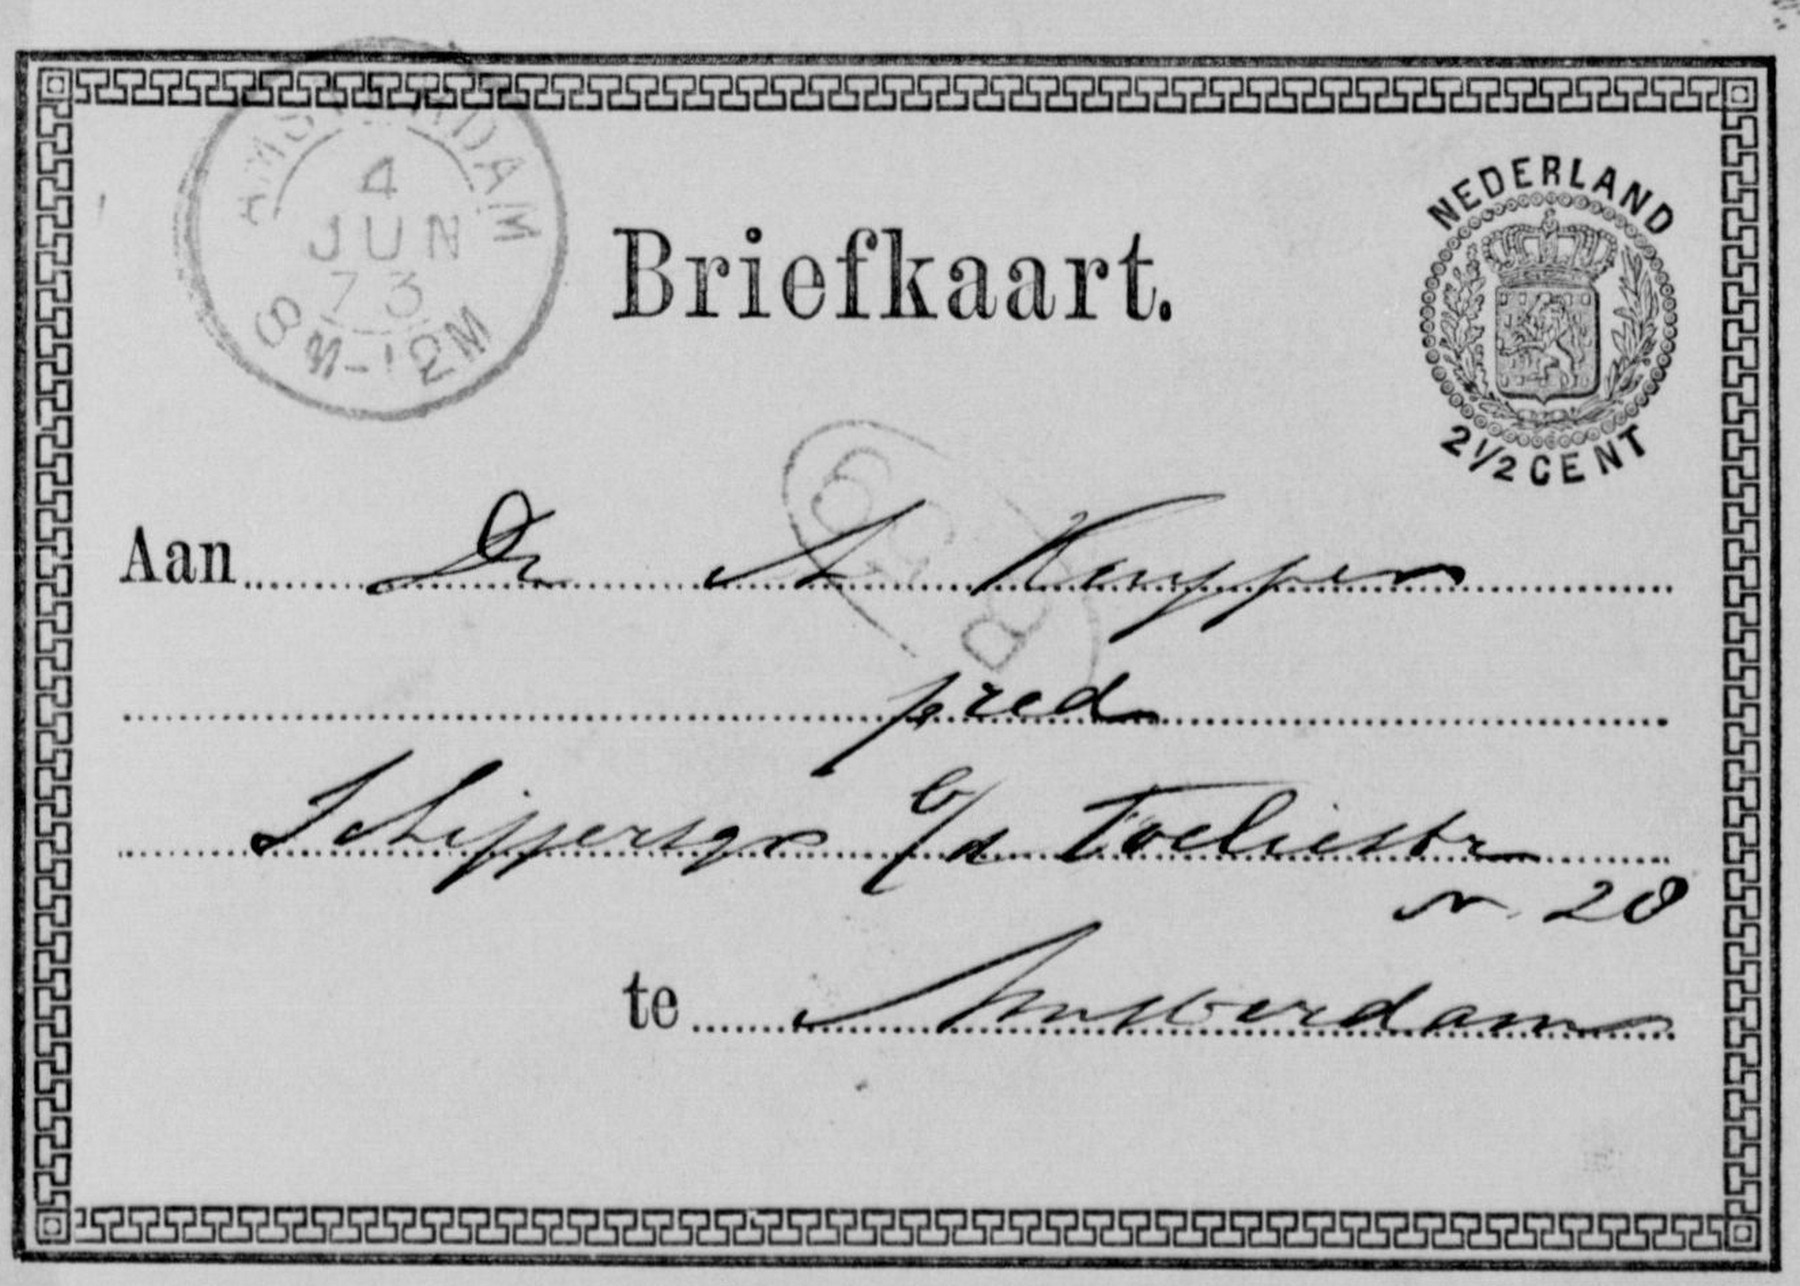 AMSTERDAM
4
JUN
73
8M-12M
Briefkaart.
NEDERLAND
2½ CENT
Aan Dr A Kuyper
pred
Schippersgr b/d Foeliestr
n. 28
te Amsterdam